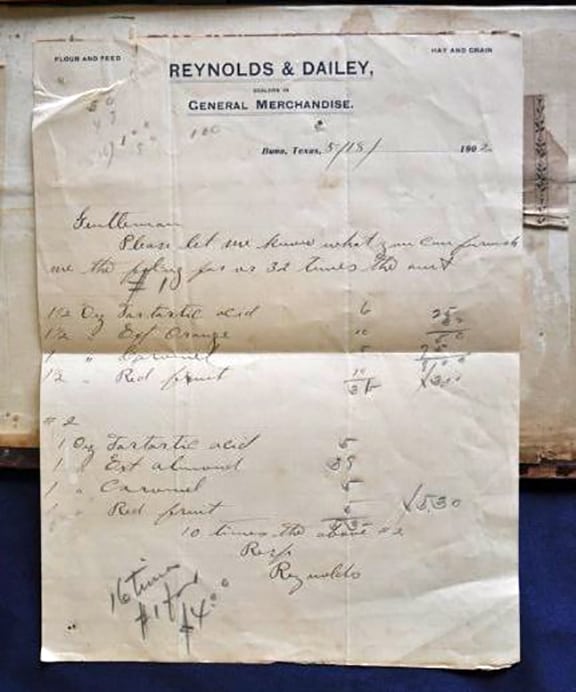 FLOUR AND FEED
HAY AND GRAIN
REYNOLDS & DAILEY,
DEALERS IN
GENERAL MERCHANDISE.
100
Buna, Texas, 5/18/ 1902
Gentlemen
Please let me know what you can furnish
me the for as 32 times the amt
# 1
1 1/2 Oz Tartastic acid 6 25
1/2 " Ext Orange 10
1 " Caramel 5
1/2 " Red fruit 10
# 2
1 Oz Tartastic acid 5
1 " Ext almond 39
1 " Caramel 5
1 " Red fruit X5.30
10 times the above #2
Resp
Reynolds
16 times
#1 for
$4.00